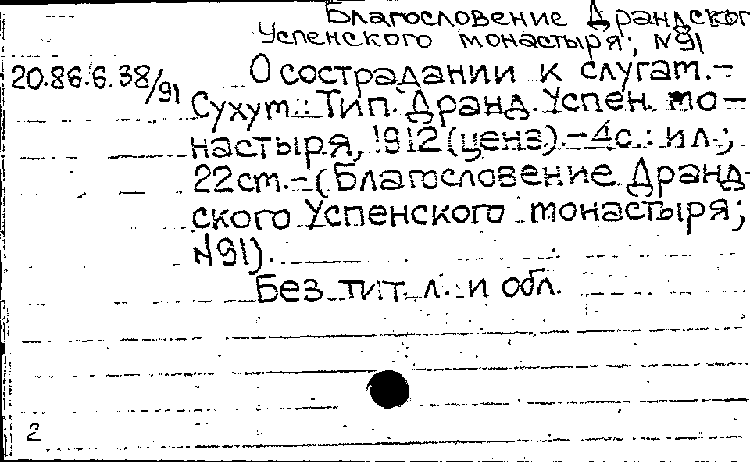 Благословение Драндског
Успенского монастыря; №91
20.86.6.38/91 О сострадании к слугам.-
Сухум: Тип. Дранд. Успен. мо-
настыря, 1912 (ценз).-4с.: ил.;
22cm.-(Благословение Дранд-
ского Успенского монастыря;
№91).
Без тит. л. и обл.
2